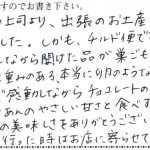 すのでお書き下さい。
の上司より、出張のお土産
した。しかも、チルド便で
しながら開けた品が巣ごも
重みのある本当に月のような
で感動しながらチョコレートの
あんのやさしい甘さと食べす
の美味しさをありがとうござい
行った時はお店に寄らせて